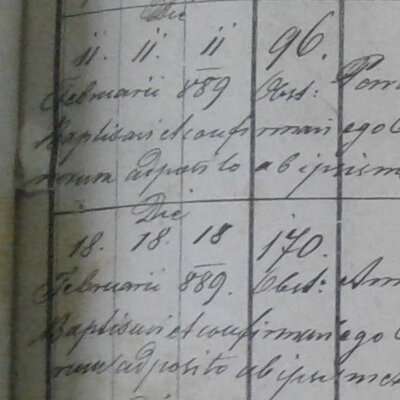 Die
11. 11. 11 96.
Februarii 889 Obst:
Baptisavi et confirmavi ego
adposito ab ipsism
Die
18. 18. 18 170.
Februarii 889. Obst:
Baptisavi et confirmavi ego
adposito ab ipsismet
Die